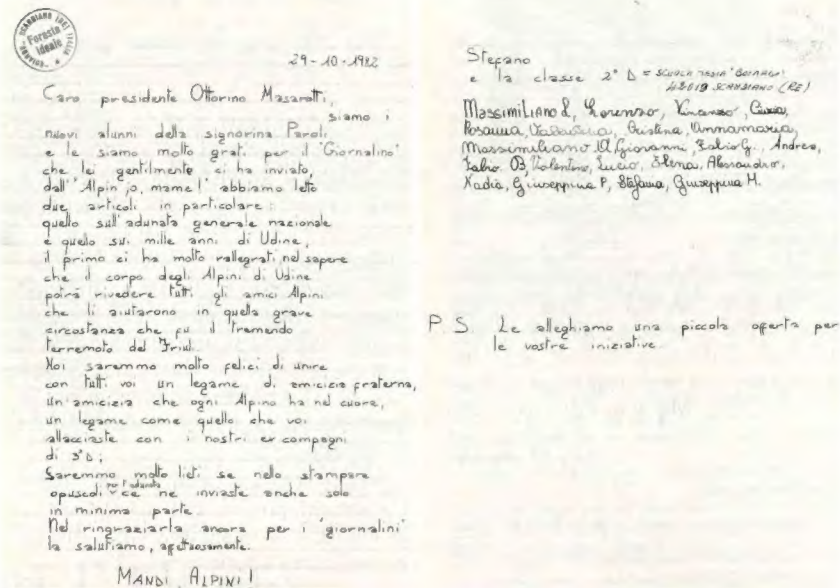 SCANDIANO (RE) ITALIA
Forasia
Ideale
29-10-1982
Caro presidente Ottorino Masarotti,
siamo i
nuovi alunni della signorina Paroli
e le siamo molto grati per il "Giornalino"
che lei gentilmente ci ha inviato,
dall' "Alpin jo, mame!" abbiamo letto
due articoli in particolare:
quello sull'adunata generale nazionale
e quello sui mille anni di Udine,
il primo ci ha molto rallegrati nel sapere
che il corpo degli Alpini di Udine
potrà rivedere tutti gli amici Alpini
che li aiutarono in quella grave
circostanza che fu il tremendo
terremoto del Friuli.
Noi saremmo molto felici di unire
con tutti voi un legame di amicizia fraterna,
un'amicizia che ogni Alpino ha nel cuore,
un legame come quello che voi
allacciaste con i nostri ex compagni
di 3°D;
Saremmo molto lieti se nello stampare
opuscoli per l'adunata ce ne inviaste anche solo
in minima parte.
Nel ringraziarla ancora per i "giornalini"
la salutiamo, affettuosamente.
MANDI, ALPINI!
Stefano
e la classe 2° D = SCUOLA MEDIA "BOIARDO"
42019 SCANDIANO (RE)
Massimiliano L, Lorenzo, Vincenzo,
Rosanna, Cristina, Annamaria,
Massimiliano M, Giovanni, Fabio G., Andrea,
Fabio B, Valentino, Lucio, Elena, Alessandro,
Nadia, Giuseppina P, Stefania, Giuseppina M.
P.S. Le alleghiamo una piccola offerta per
le vostre iniziative.